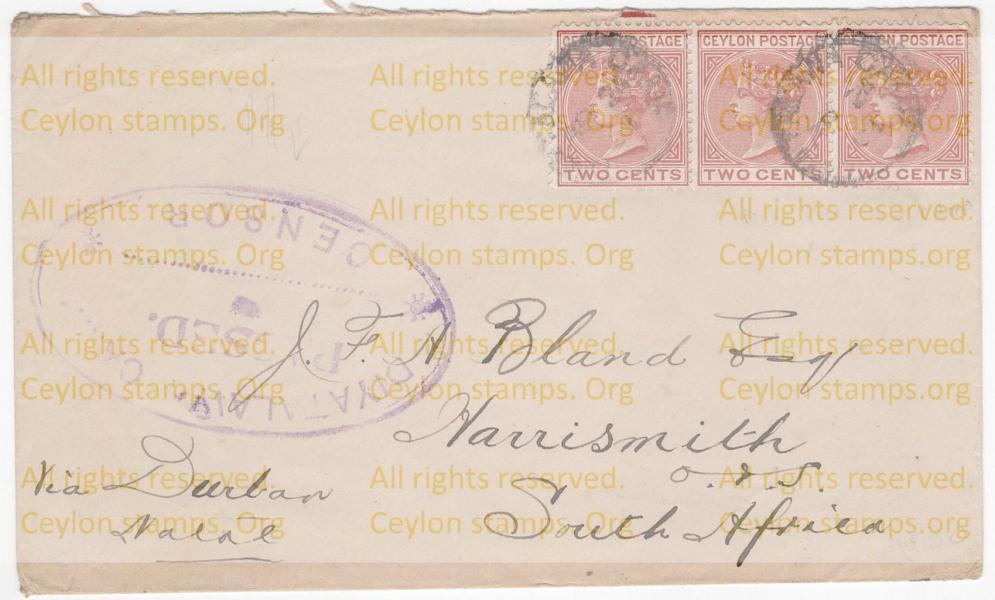 CEYLON POSTAGE CEYLON POSTAGE CEYLON POSTAGE
TWO CENTS TWO CENTS TWO CENTS
All rights reserved. All rights reserved. All rights reserved.
Ceylon stamps. Org Ceylon stamps. Org Ceylon stamps. Org
All rights reserved. All rights reserved. All rights reserved.
Ceylon stamps. Org Ceylon stamps. Org Ceylon stamps. Org
All rights reserved. All rights reserved. All rights reserved.
Ceylon stamps. Org Ceylon stamps. Org Ceylon stamps. Org
All rights reserved. All rights reserved. All rights reserved.
Ceylon stamps. org Ceylon stamps. org Ceylon stamps. org
CENSOR
J. F. A Bland Esq
Harrismith
O. F. S.
South Africa
Via Durban
Natal